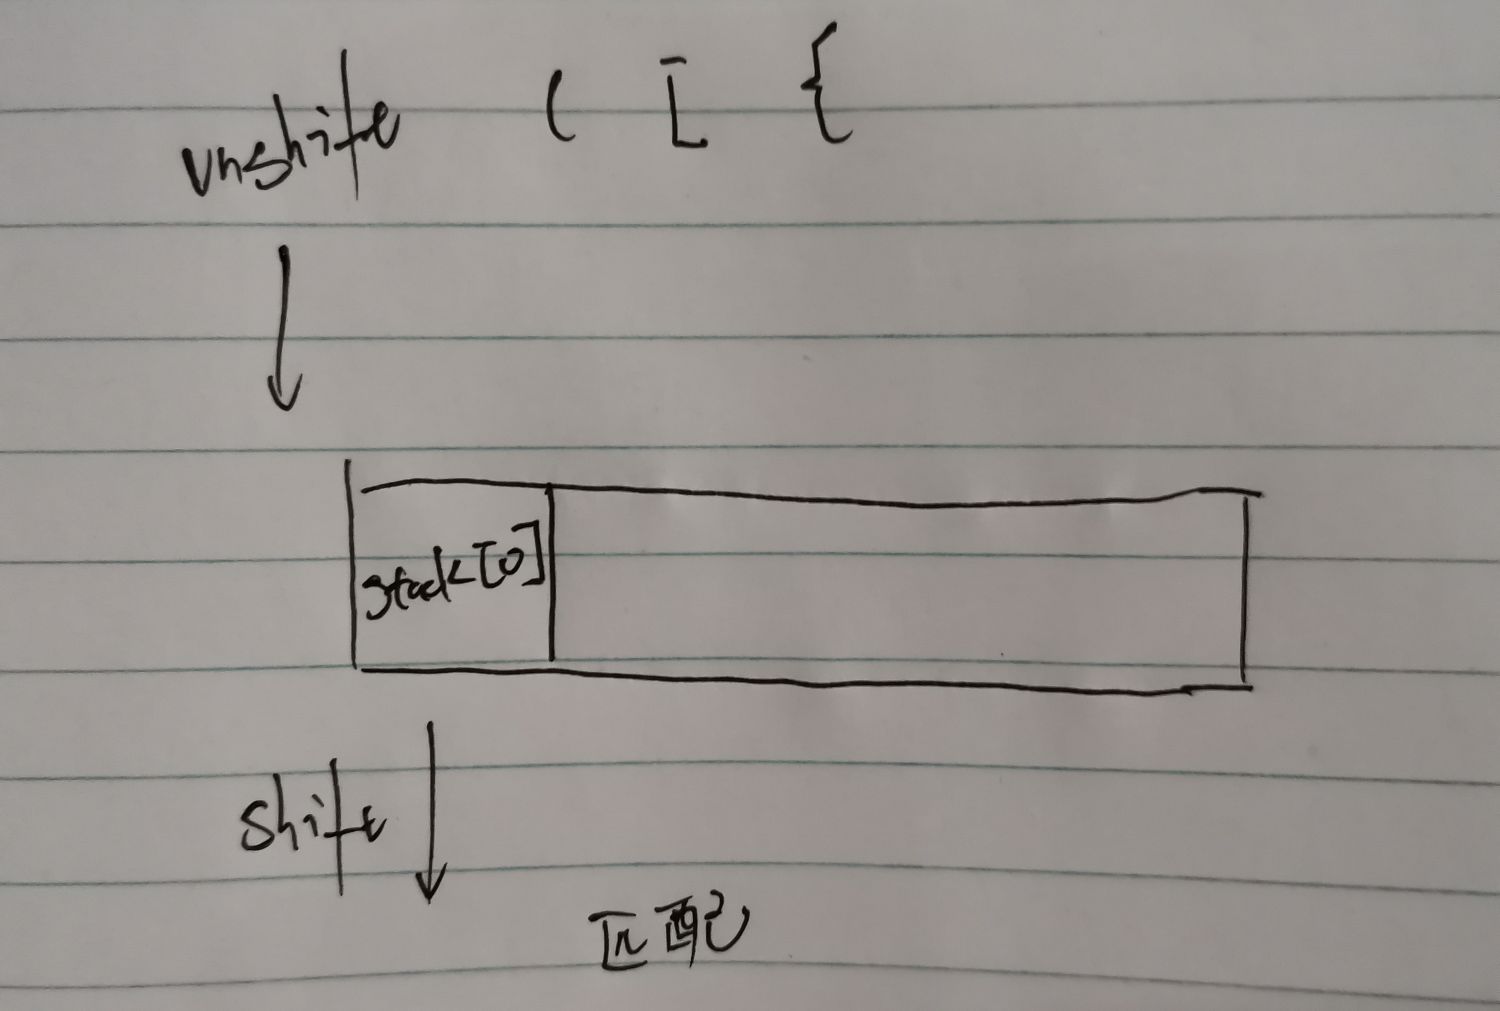 unshift ( [ {
stack[0]
shift
匹配